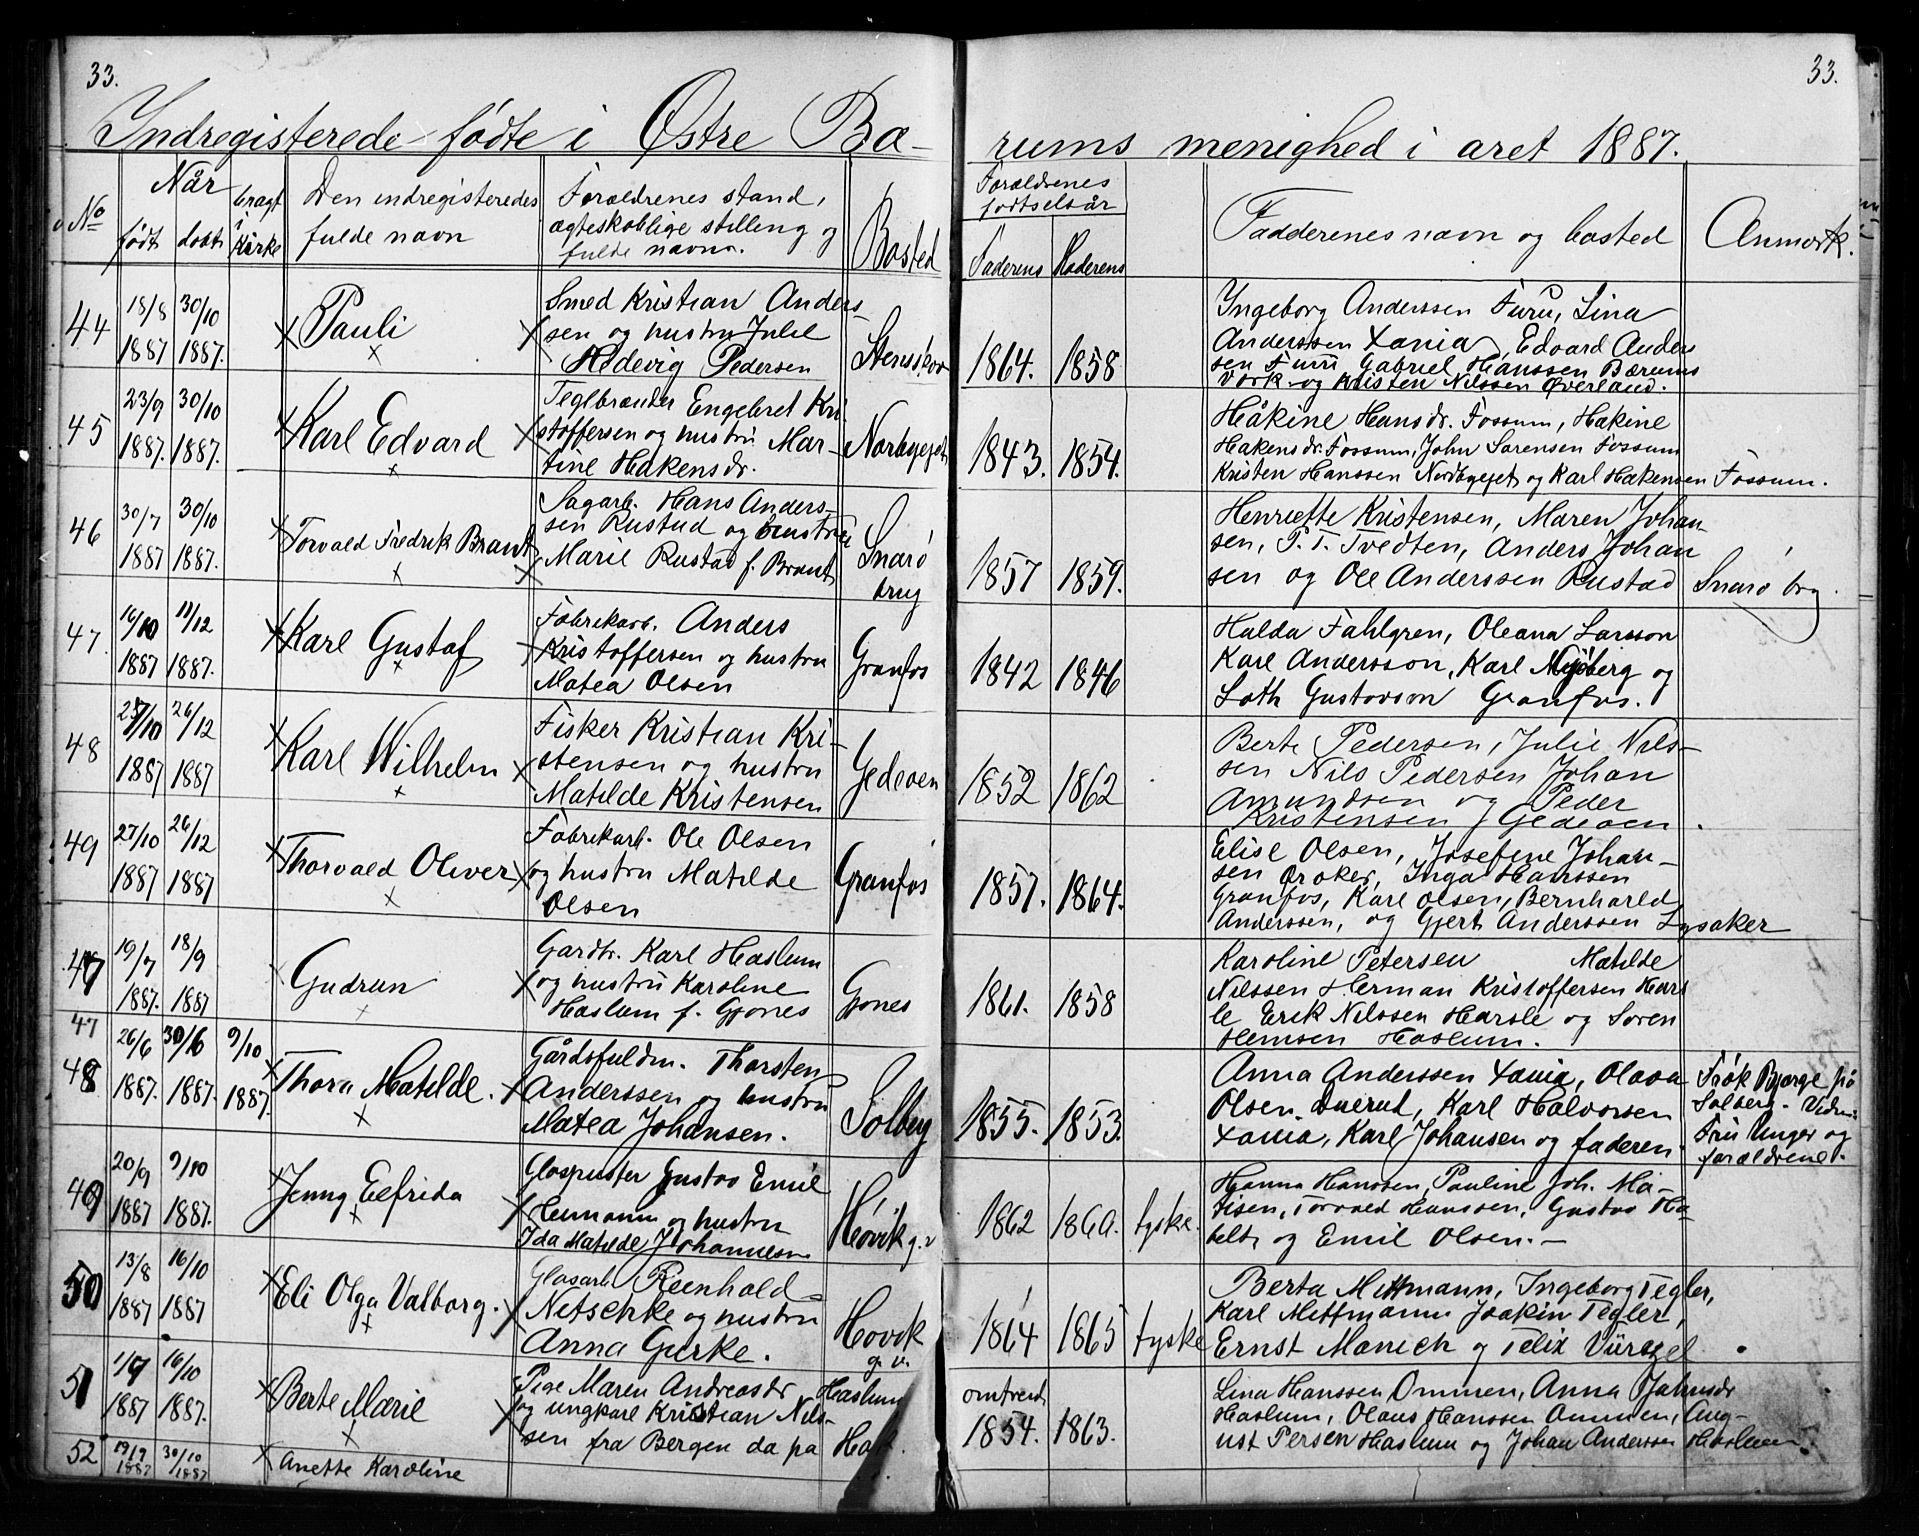 33.
33.
Indregisterede fødte i Østre Bærums menighed i aret 1887.
No
Når
født
døbt
bragt i Kirke
Den indregisteredes
fulde navn
Forældrenes stand,
ægteskablige stilling og
fulde navn.
Bosted
Forældrenes
fødselsår
Faderens
Moderens
Fadderenes navn og bosted
Anmærk.
44
18/8 1887
30/10 1887.
Pauli
Smed Kristian Anders-
sen og hustru Julie
Hedevig Pedersen
Stensskov
1864.
1858
Ingeborg Anderssen Furu, Lina
Anderssen Xania, Edvard Anders
sen Furu Gabriel Hanssen Bærums
Værk og Kristen Nilssen Øverland.
45
23/9 1887.
30/10 1887.
Karl Edvard
Teglbrænder Engebret Kri
stoffersen og hustru Mar-
tine Hakensdr.
Norbyget
1843.
1854.
Håkine Hansdr. Fossum, Hakine
Hakensdr. Fossum, John Sørensen Fossum
Kristen Hanssen Nordbyget og Karl Hakensen Fossum.
46
30/7 1887
30/10 1887.
Torvald Fredrik Brant
Sagarb. Hans Anders-
sen Rustad og hustru
Marie Rustad f. Brant
Snarø
brug
1857
1859.
Henriette Kristensen, Maren Johan-
sen, P. T. Tvedten, Anders Johan
sen og Ole Anderssen Rustad Snarø brg.
47.
16/10 1887
11/12 1887.
Karl Gustaf
Fabrikarb. Anders
Kristoffersen og hustru
Matea Olsen
Granfos
1842
1846
Hulda Fahlgren, Oleana Larsson
Karl Andersson, Karl Nyøberg og
Loth Gustavson Granfos.
48
27/10 1887
26/12 1887
Karl Wilhelm
Fisker Kristian Kri-
stensen og hustru
Matilde Kristensen
Gedeøen
1852
1862
Berte Pedersen, Julie Nils-
sen Nils Pedersen Johan
Amundsen og Peder
Kristensen Gedeøen.
49
27/10 1887
26/12 1887
Thorvald Oliver
Fabrikarb. Ole Olsen
og hustru Matilde
Olsen
Granfos
1857.
1864.
Elise Olsen, Josefine Johan-
sen Øraker, Inga Hanssen
Granfos, Karl Olsen, Bernhard
Anderssen, og Gjert Anderssen Lysaker
47
19/7 1887.
18/9 1887
Gudrun
Gardbr. Karl Haslum
og hustru Karoline
Haslum f. Gjones
Gjones
1861.
1858
Karoline Petersen Matilde
Nilssen Herman Kristoffersen Hars
le Erik Nilssen Harsle og Søren
Hemsen Haslum.
47
48
26/6 1887.
30/6 1887.
9/10 1887.
Thora Matilde.
Gårdsfuldm. Thorsten
Anderssen og hustru
Matea Johansen.
Solberg
1855.
1853.
Anna Anderssen Xania, Olava
Olsen Duerud, Karl Halvorsen
Xania, Karl Johansen og faderen.
Frøk Bjørge på
Solberg.
Fru Unger og
forældrene.
49
20/9 1887
9/10 1887.
Jenny Elfrida
Glaspuster Gustav Emil
Heimann og hustru
Ida Matilde Johannesen
Høvik g.v
1862
1860.
tyske.
Hanna Hanssen, Pauline Joh. Ma-
tisen, Torvald Hanssen, Gustav Ha-
belt, og Emil Olsen.-
50
13/8 1887
16/10 1887
Eli Olga Valborg.
Glasarb. Reinhold
Nitschke og hustru
Anna Gurke.
Høvik
g. v.
1864
1865
tyske
Berta Mittmann, Ingeborg Tegler,
Karl Mittmann Joakin Tegler,
Ernst Manich og Felix Vürgel
51
1/9 1887
16/10 1887.
Berte Marie
Pige Maren Andreasdr
og ungkarl Kristian Nils-
sen fra Bergen da på
Haslum
Hak.
omtrent
1854.
1863.
Lina Hanssen Ommen, Anna
Haslum, Olaus Hanssen Ommen, Aug-
ust Persen Haslum og Johan Anderssen Haslum.
52
19/9 1887
30/10 1887
Anette Karoline